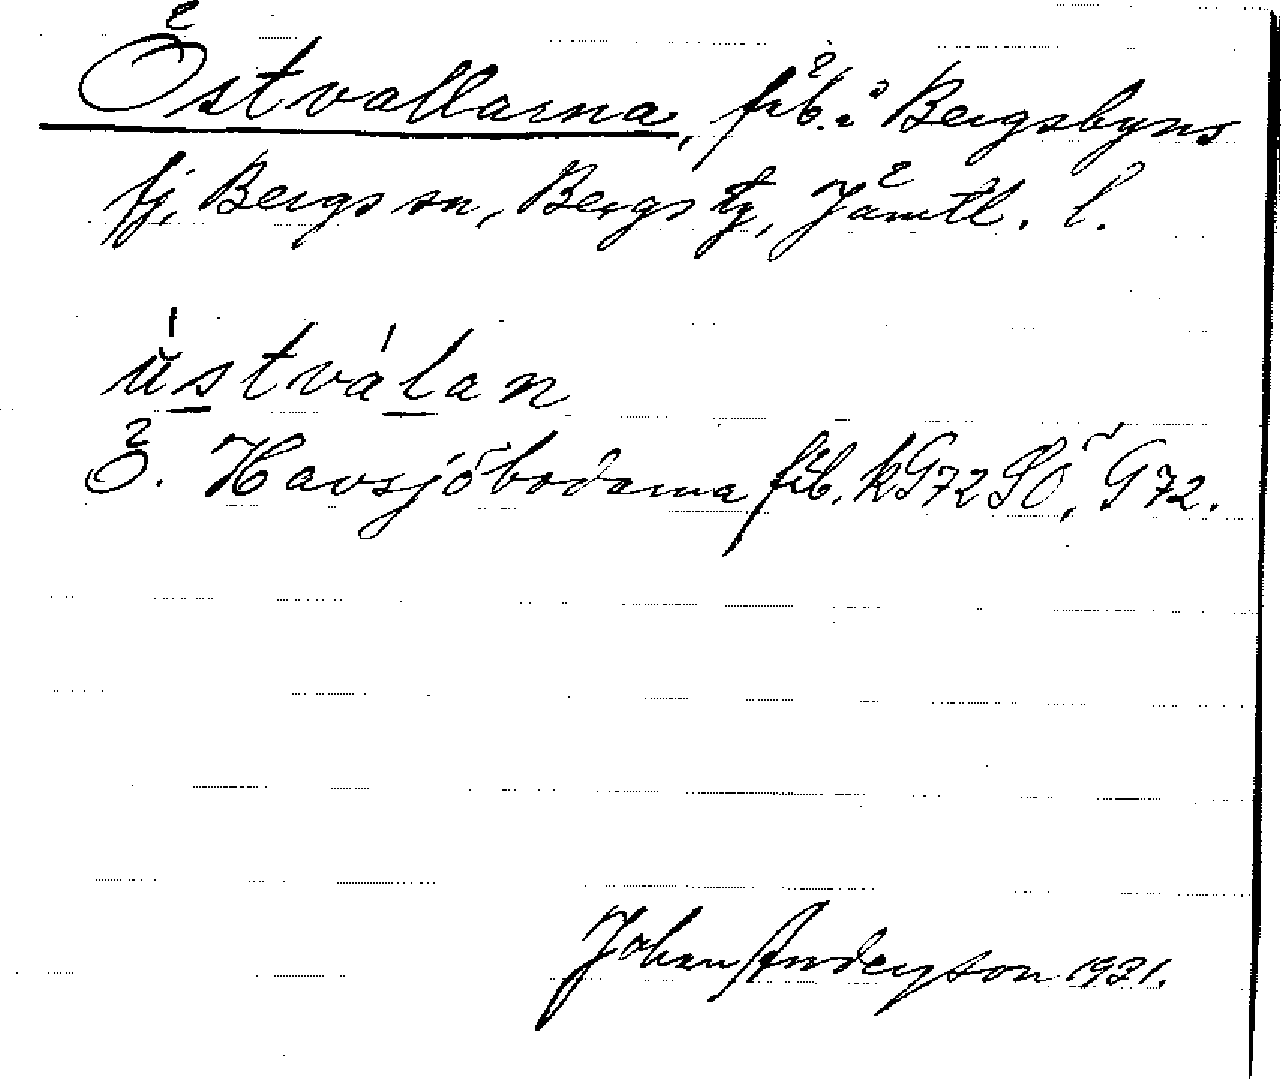 Östvallarna, fäb. i Bergsbyns
fj. Bergs sn, Bergs tg, Jämtl. l.
ǘstválan
Ö. Havsjöbodarna fäb. kG72SÖ, G72.
Johan Anderson 1931.